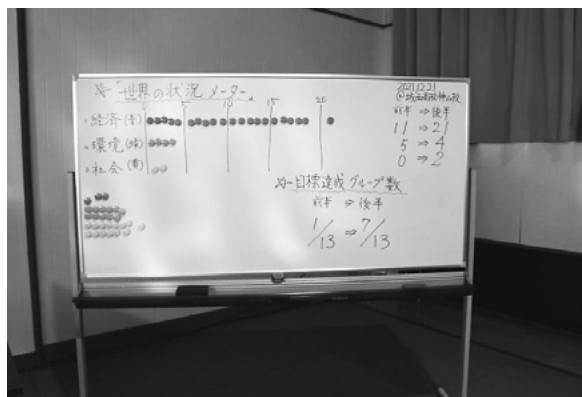 ☆「世界の状況メーター」
0 5 10 15 20
・経済(青)
・環境(緑)
・社会(黄)
2021.12.21
前半 ⇒ 後半
11 ⇒ 21
5 ⇒ 4
0 ⇒ 2
☆ 目標達成グループ数
前半 ⇒ 後半
1/13 ⇒ 7/13